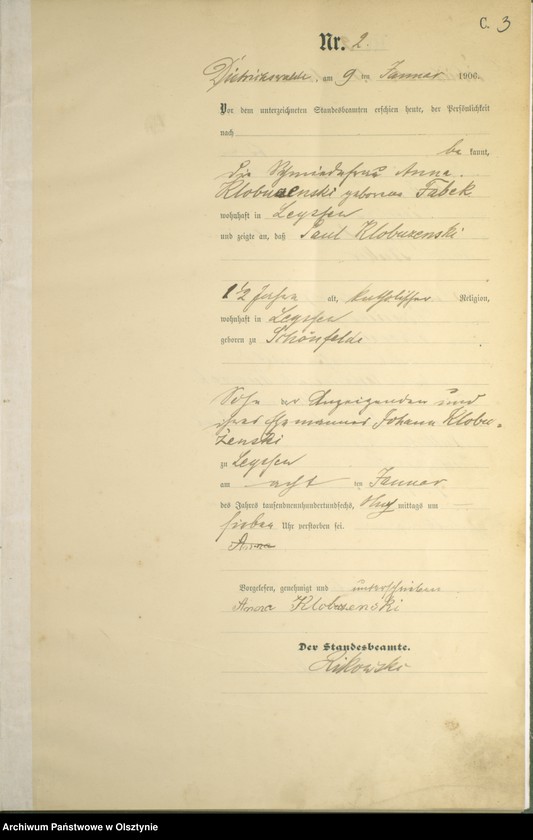 C. 3
Nr. 2.
Dietrichswalde, am 9 ten Januar 1906.
Vor dem unterzeichneten Standesbeamten erschien heute, der Persönlichkeit
nach
be kannt,
die Schmiedefrau Anna
Klobuzenski geborene Fabek
wohnhaft in Leyssen
und zeigte an, daß Paul Klobuzenski
1 1/2 Jahre alt, katholischer Religion,
wohnhaft in Leyssen
geboren zu Schönfelde
Sohn der Anzeigenden und
ihres Ehemannes Johann Klobu-
zenski
zu Leyssen
am acht ten Januar
des Jahres tausendneunhundertundsechs, Nach mittags um
sieben Uhr verstorben sei.
Anna
Vorgelesen, genehmigt und unterschrieben
Anna Klobuzenski
Der Standesbeamte.
Archiwum Państwowe w Olsztynie